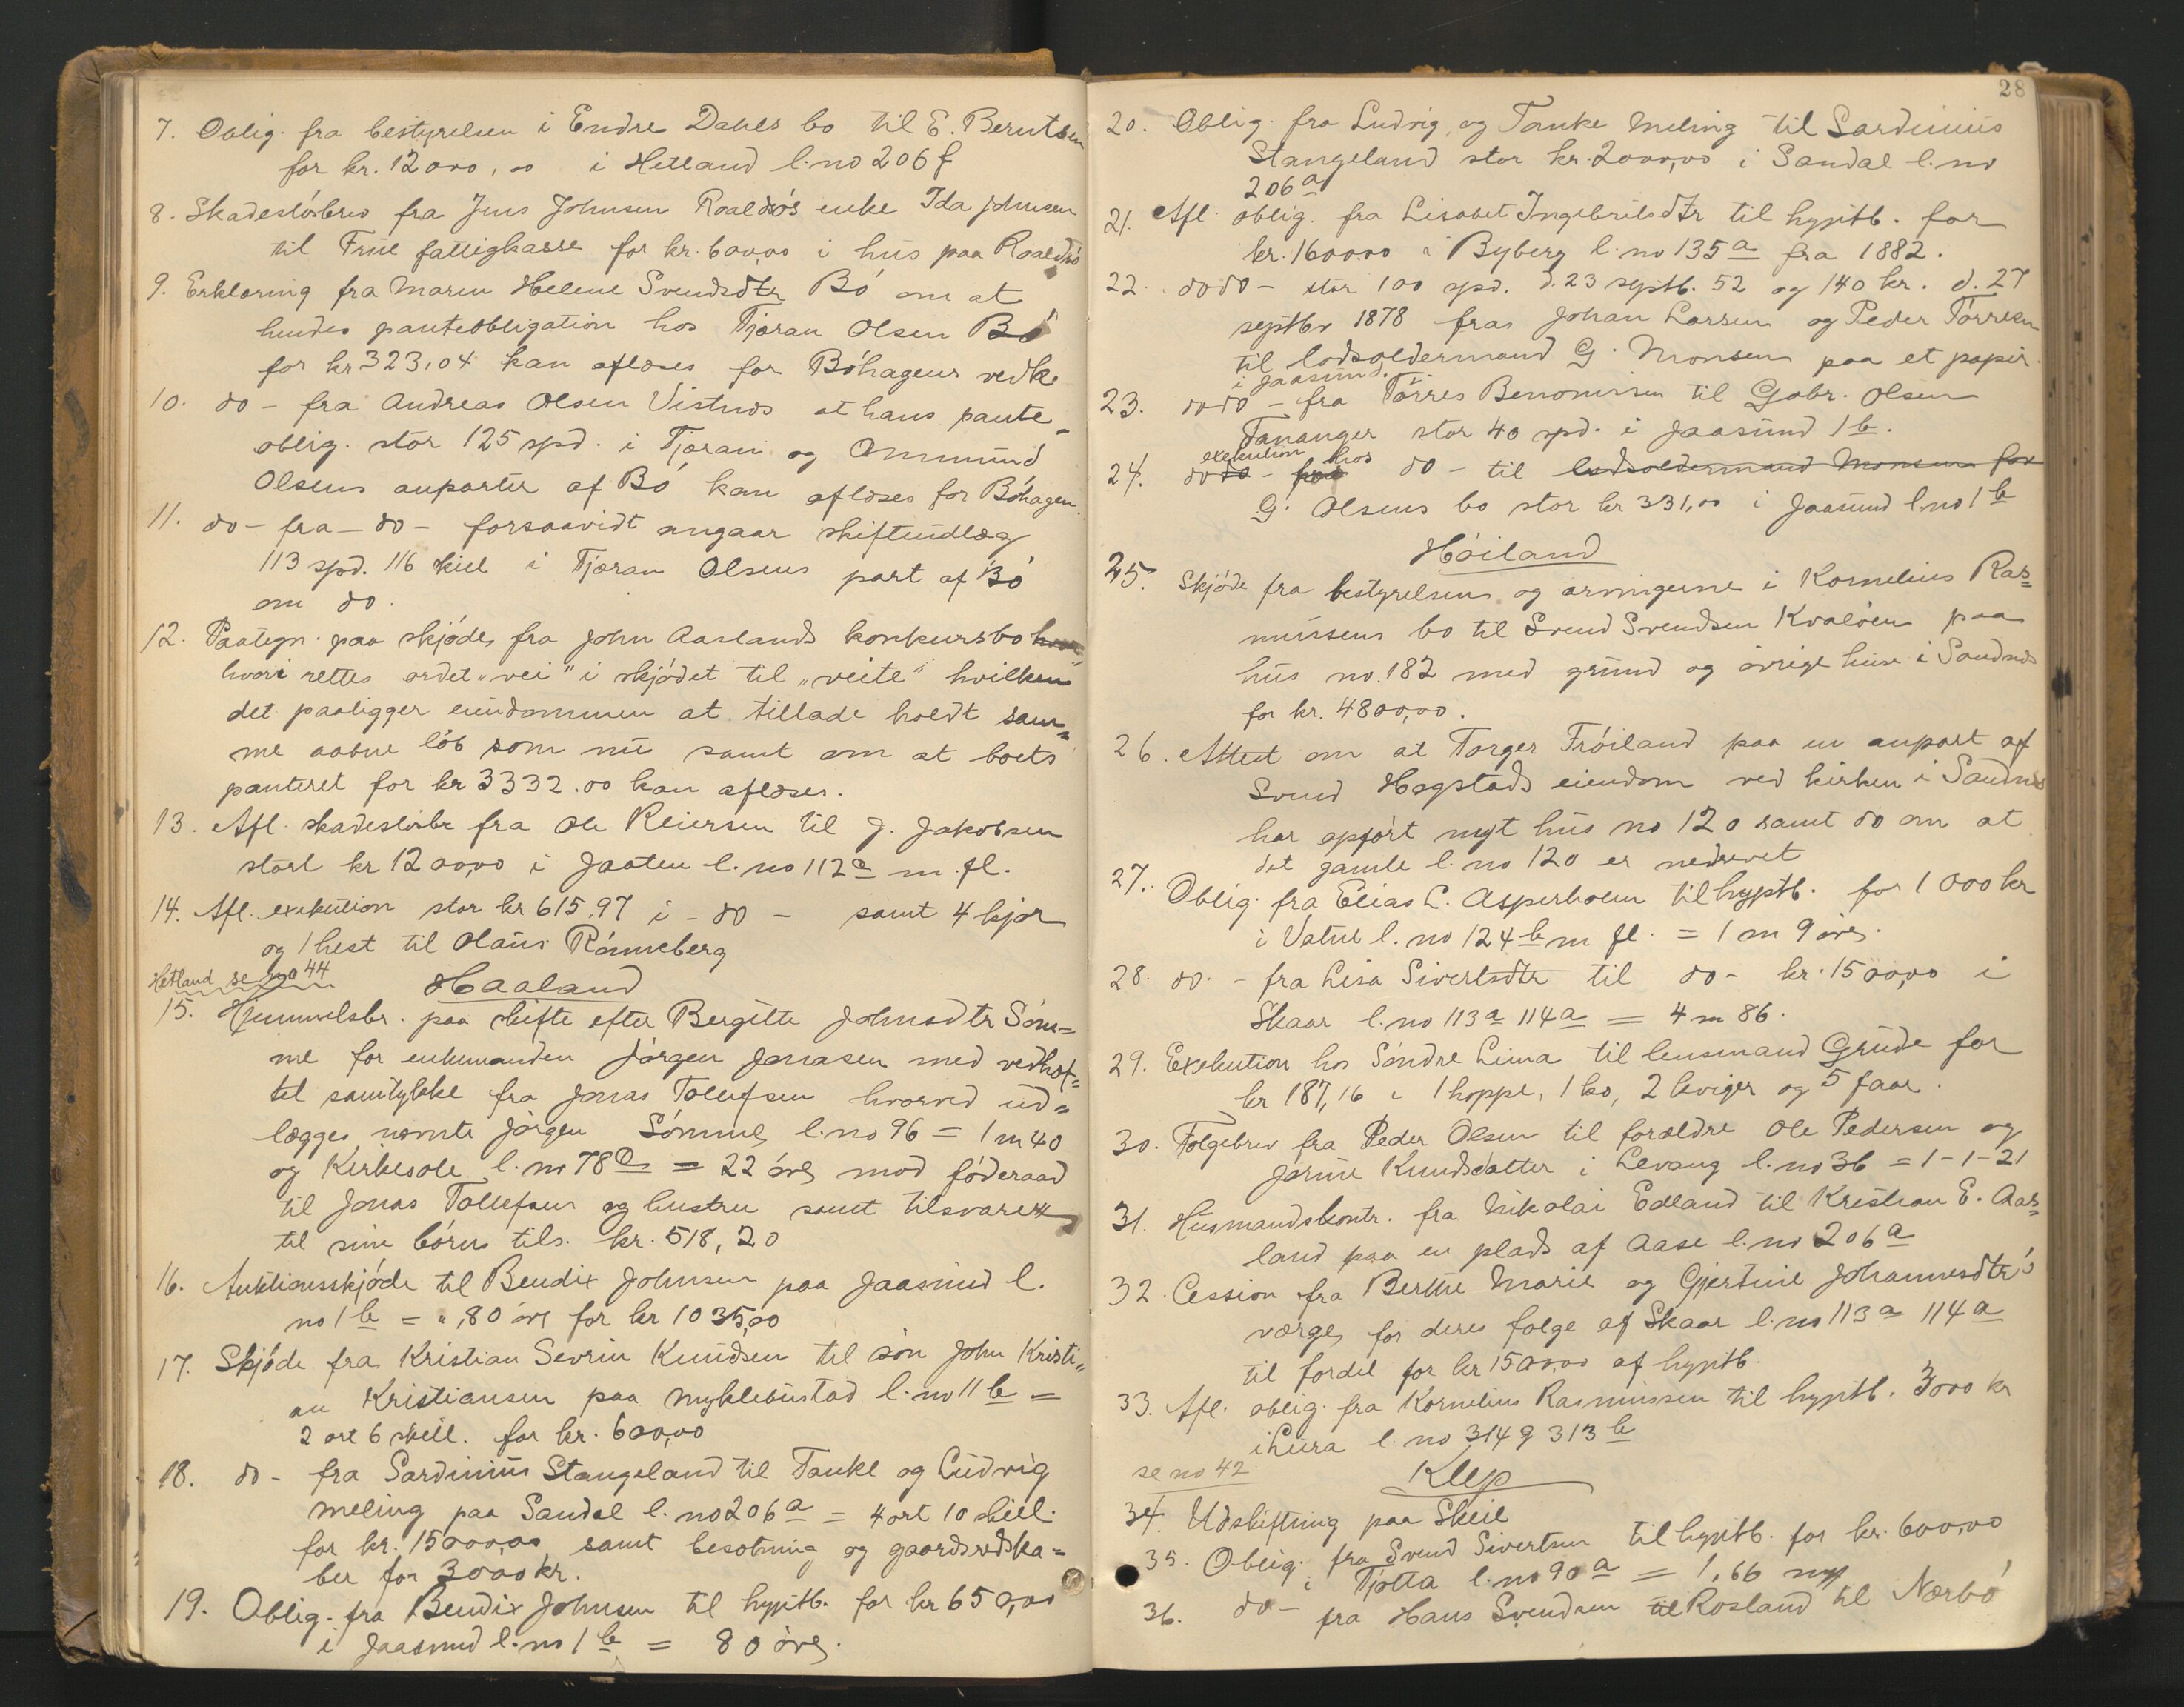 7. Oblig. fra bestyrelsen i Endre Dahls bo til E. Berntsen
for kr. 12000,00 i Hetland l.no 206 f
8. Skadesløsbrev fra Jens Johnsen Roaldsøs enke Ida Johnsen
til Frue fattigkasse for kr. 600,00 i hus paa Roaldsø
9. Erklæring fra Maren Helene Svendsdtr Bö om at
hendes panteobligation hos Tjæran Olsen Bö
for kr 323,04 kan aflæses for Böhagens vedk.
10. do - fra Andreas Olsen Vistnæs at hans pante=
oblig. stor 125 spd. i Tjæran og Ommund
Olsens anparter af Bö kan aflæses for Böhagen.
11. do - fra - do - forsaavidt angaar skifteudlæg
113 spd. 116 skill i Tjæran Olsens part af Bö
om do.
12. Paategn. paa skjöde fra John Aaslands konkursbo
hvori rettes ordet "vei" i skjödet til "veite" hvilken
det paaligger eiendommen at tillade holdt sam=
me aabne löb som nu samt om at boets
panteret for kr 3332.00 kan aflæses.
13. Afl. skadeslösbr fra Ole Reiersen til J. Jakobsen
stort kr 1200,00 i Jaaten l.no 112a m. fl.
14. Afl. exekution stor kr 615,97 i - do - samt 4 kjör
og 1 hest til Olaus Rönneberg
Hetland se no 44
Haaland
15. Hjemmelsbr. paa skifte efter Bergitte Johnsdtr Söm=
me for enkemanden Jörgen Jonasen med vedhæf=
tet samtykke fra Jonas Tollefsen hvorved ud=
lægges nævnte Jörgen Sömme l.no 96 = 1 m 40
og Kirkesole l.no 78 = 22 öre mod föderaad
til Jonas Tollefsen og hustru samt tilsvarer
til sine börn tils. kr. 518,20
16. Auktionsskjöde til Bendix Johnsen paa Jaasund l.
no 1 b = ",80 öre for kr 1035,00
17. Skjöde fra Kristian Sevrin Knudsen til sön John Kristi=
an Kristiansen paa Myklebustad l.no 11 b =
2 ort 6 skill. for kr. 600,00
18. do - fra Sardinius Stangeland til Tanke og Ludvig
Meling paa Sandal l.no 206 a = 4 ort 10 skill.
for kr. 15000,00 samt besætning og gaardsredska=
ber for 3000 kr.
19. Oblig. fra Bendix Johnsen til hyptb. for kr 650,00
i Jaasund l.no 1 b = 80 öre.
28
20. Oblig. fra Ludvig og Tanke Meling til Sardinius
Stangeland stor kr. 2000,00 i Sandal l.no
206 a
21. Afl. oblig. fra Lisabet Ingebritsdtr til hyptb. for
kr. 1600.00 i Byberg l.no 135 a fra 1882.
22. do do - stor 100 spd. d. 23 septb. 52 og 140 kr. d. 27
septbr 1878 fra Johan Larsen og Peder Törresen
til lodsoldermand G. Monsen paa et papir.
i Jaasund.
23. do do - fra Törres Benomisen til Gabr. Olsen
Tananger stor 40 spd. i Jaasund 1 b.
exekution hos
24. do do - fra do - til lodsoldermand Monsen for
G. Olsens bo stor kr 331,00 i Jaasund l.no 1 b
Höiland
25. Skjöde fra bestyrelsen og arvingerne i Kornelius Ras=
mussens bo til Svend Svendsen Kvalöen paa
hus no. 182 med grund og övrige huse i Sandnæs
for kr. 4800,00.
26. Attest om at Torger Fröiland paa en anpart af
Svend Hogstads eiendom ved kirken i Sandnæs
har opfört nyt hus no 120 samt do om at
det gamle l.no 120 er nedrevet
27. Oblig. fra Elias L. Asperholm til hyptb. for 1000 kr
i Vatne l.no 124 b m fl. = 1 m 9 öre.
28. do. - fra Lisa Sivertsdtr til do - kr. 1500,00 i
Skaar l.no 113a 114a = 4 m 86.
29. Exekution hos Söndre Lima til lensmand Grude for
kr 187,16 i 1 hoppe, 1 ko, 2 kviger og 5 faar.
30. Følgebrev fra Peder Olsen til forældre Ole Pedersen og
Jorine Knudsdatter i Levang l.no 36 = 1-1-21
31. Husmandskontr. fra Nikolai Edland til Kristian E. Aas=
land paa en plads af Aase l.no 206 a
32. Cession fra Berthe Marie og Gjertine Johannesdtr's
værge for deres følge af Skaar l.no 113 a 114 a
til fordel for kr 1500,00 af hyptb.
33. Afl. oblig. fra Kornelius Rasmussen til hyptb. 3000 kr
i Lura l.no 314 g 313 b
se no 42
Klep
34. Udskiftning paa Skeie
35. Oblig. fra Svend Sivertsen til hyptb. for kr. 600,00
i Tjøtta l.no 90 a = 1,66 ny
36. do - fra Hans Svendsen til Rosland til Nærbö